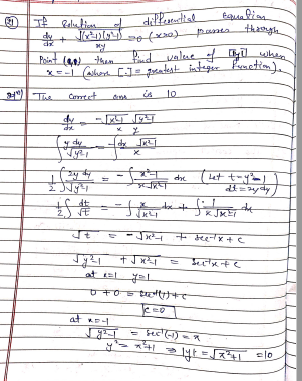 If Solution of differential Equation
dy/dx + √((x²-1)(y²-1))/xy = 0 (x>0) passes through
Point then find value of when
x = -1 (where [.] = greatest integer function).
The Correct ans is 10
dy/dx = -√(x²-1) √(y²-1) / x y
∫ y dy/√(y²-1) = -∫ dx √(x²-1)/x
1/2 ∫ 2y dy/√(y²-1) = -∫ (x²-1)/(x√(x²-1)) dx (Let t = y²-1
dt = 2y dy)
1/2 ∫ dt/√t = -∫ x/√(x²-1) dx + ∫ 1/(x√(x²-1)) dx
√t = -√(x²-1) + sec⁻¹x + c
√(y²-1) + √(x²-1) = sec⁻¹x + c
at x=1 y=1
0 + 0 = sec⁻¹(1) + c
c = 0
at x = -1
√(y²-1) = sec⁻¹(-1) = π
y² = π²+1 ⇒ |y| = √(π²+1) = 10